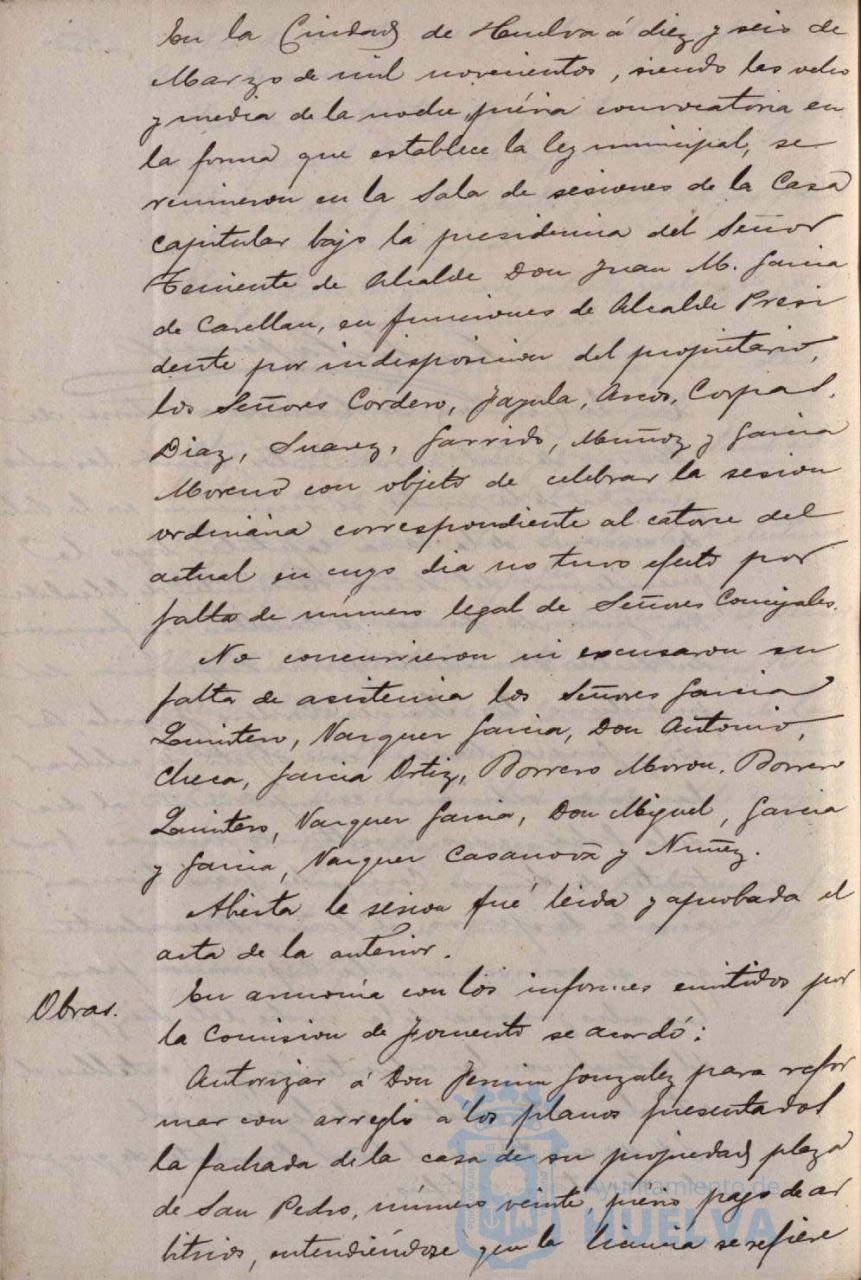 En la Ciudad de Huelva á diez y seis de
Marzo de mil novecientos, siendo las ocho
y media de la noche, prévia convocatoria en
la forma que establece la ley municipal, se
reunieron en la Sala de sesiones de la Casa
capitular bajo la presidencia del Señor
Teniente de Alcalde Don Juan M. Garcia
de Casellau, en funciones de Alcalde Presi
dente por indisposicion del propietario,
los Señores Cordero, Jazula, Arcos, Corpas,
Diaz, Suarez, Garrido, Muñoz y Garcia
Moreno con objeto de celebrar la sesion
ordinaria correspondiente al catorce del
actual en cuyo dia no tuvo efecto por
falta de número legal de Señores Concejales.
No concurrieron ni excusaron su
falta de asistencia los Señores Garcia
Quintero, Vazquez Garcia, Don Antonio,
Checa, Garcia Ortiz, Borrero Moron, Borrero
Quintero, Vazquez Garcia, Don Miguel, Garcia
y Garcia, Vazquez Casanova y Nuñez.
Abierta la sesion fué leida y aprobada el
acta de la anterior.
Obras.
En armonia con los informes emitidos por
la Comision de Fomento se acordó:
Autorizar á Don Fermin Gonzalez para refor
mar con arreglo á los planos presentados
la fachada de la casa de su propiedad plaza
de San Pedro, número veinte, prévio pago de ar
bitrios, entendiéndose que la licencia se refiere
Ayuntamiento de
HUELVA